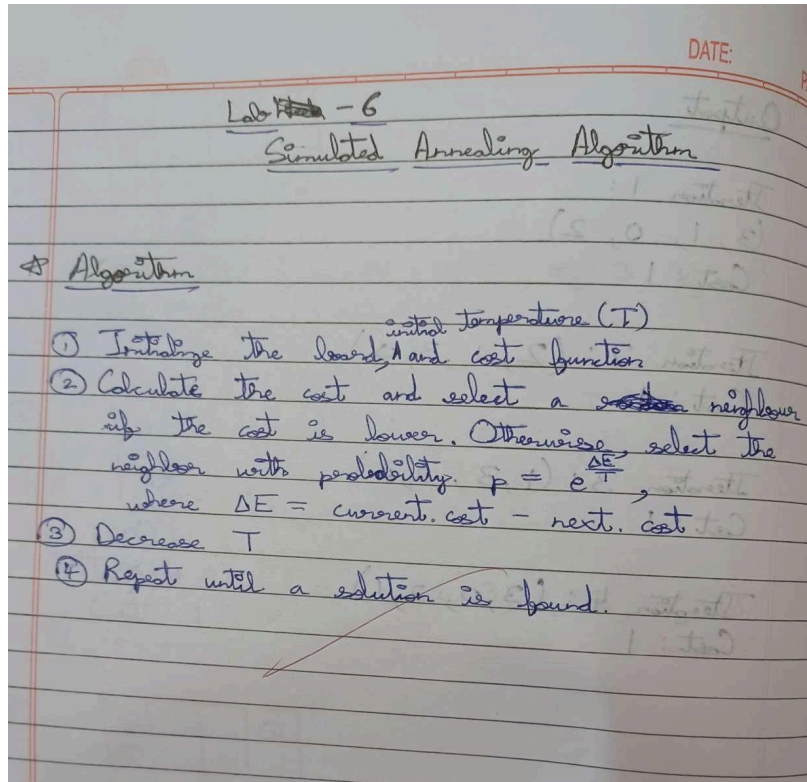 DATE:
Lab - 6
Simulated Annealing Algorithm
Algorithm
① Initialize the board, initial temperature (T) and cost function
② Calculate the cost and select a neighbour
if the cost is lower. Otherwise, select the
neighbor with probability. p = e^(ΔE/T),
where ΔE = current.cost - next.cost
③ Decrease T
④ Repeat until a solution is found.